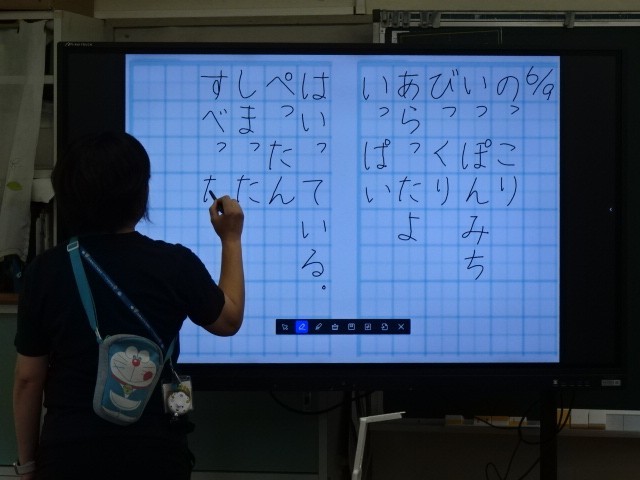 6/9
のっこり
いっぽんみち
びっくり
あらったよ
いっぱい
はいっている。
ぺったん
しまった
すべった